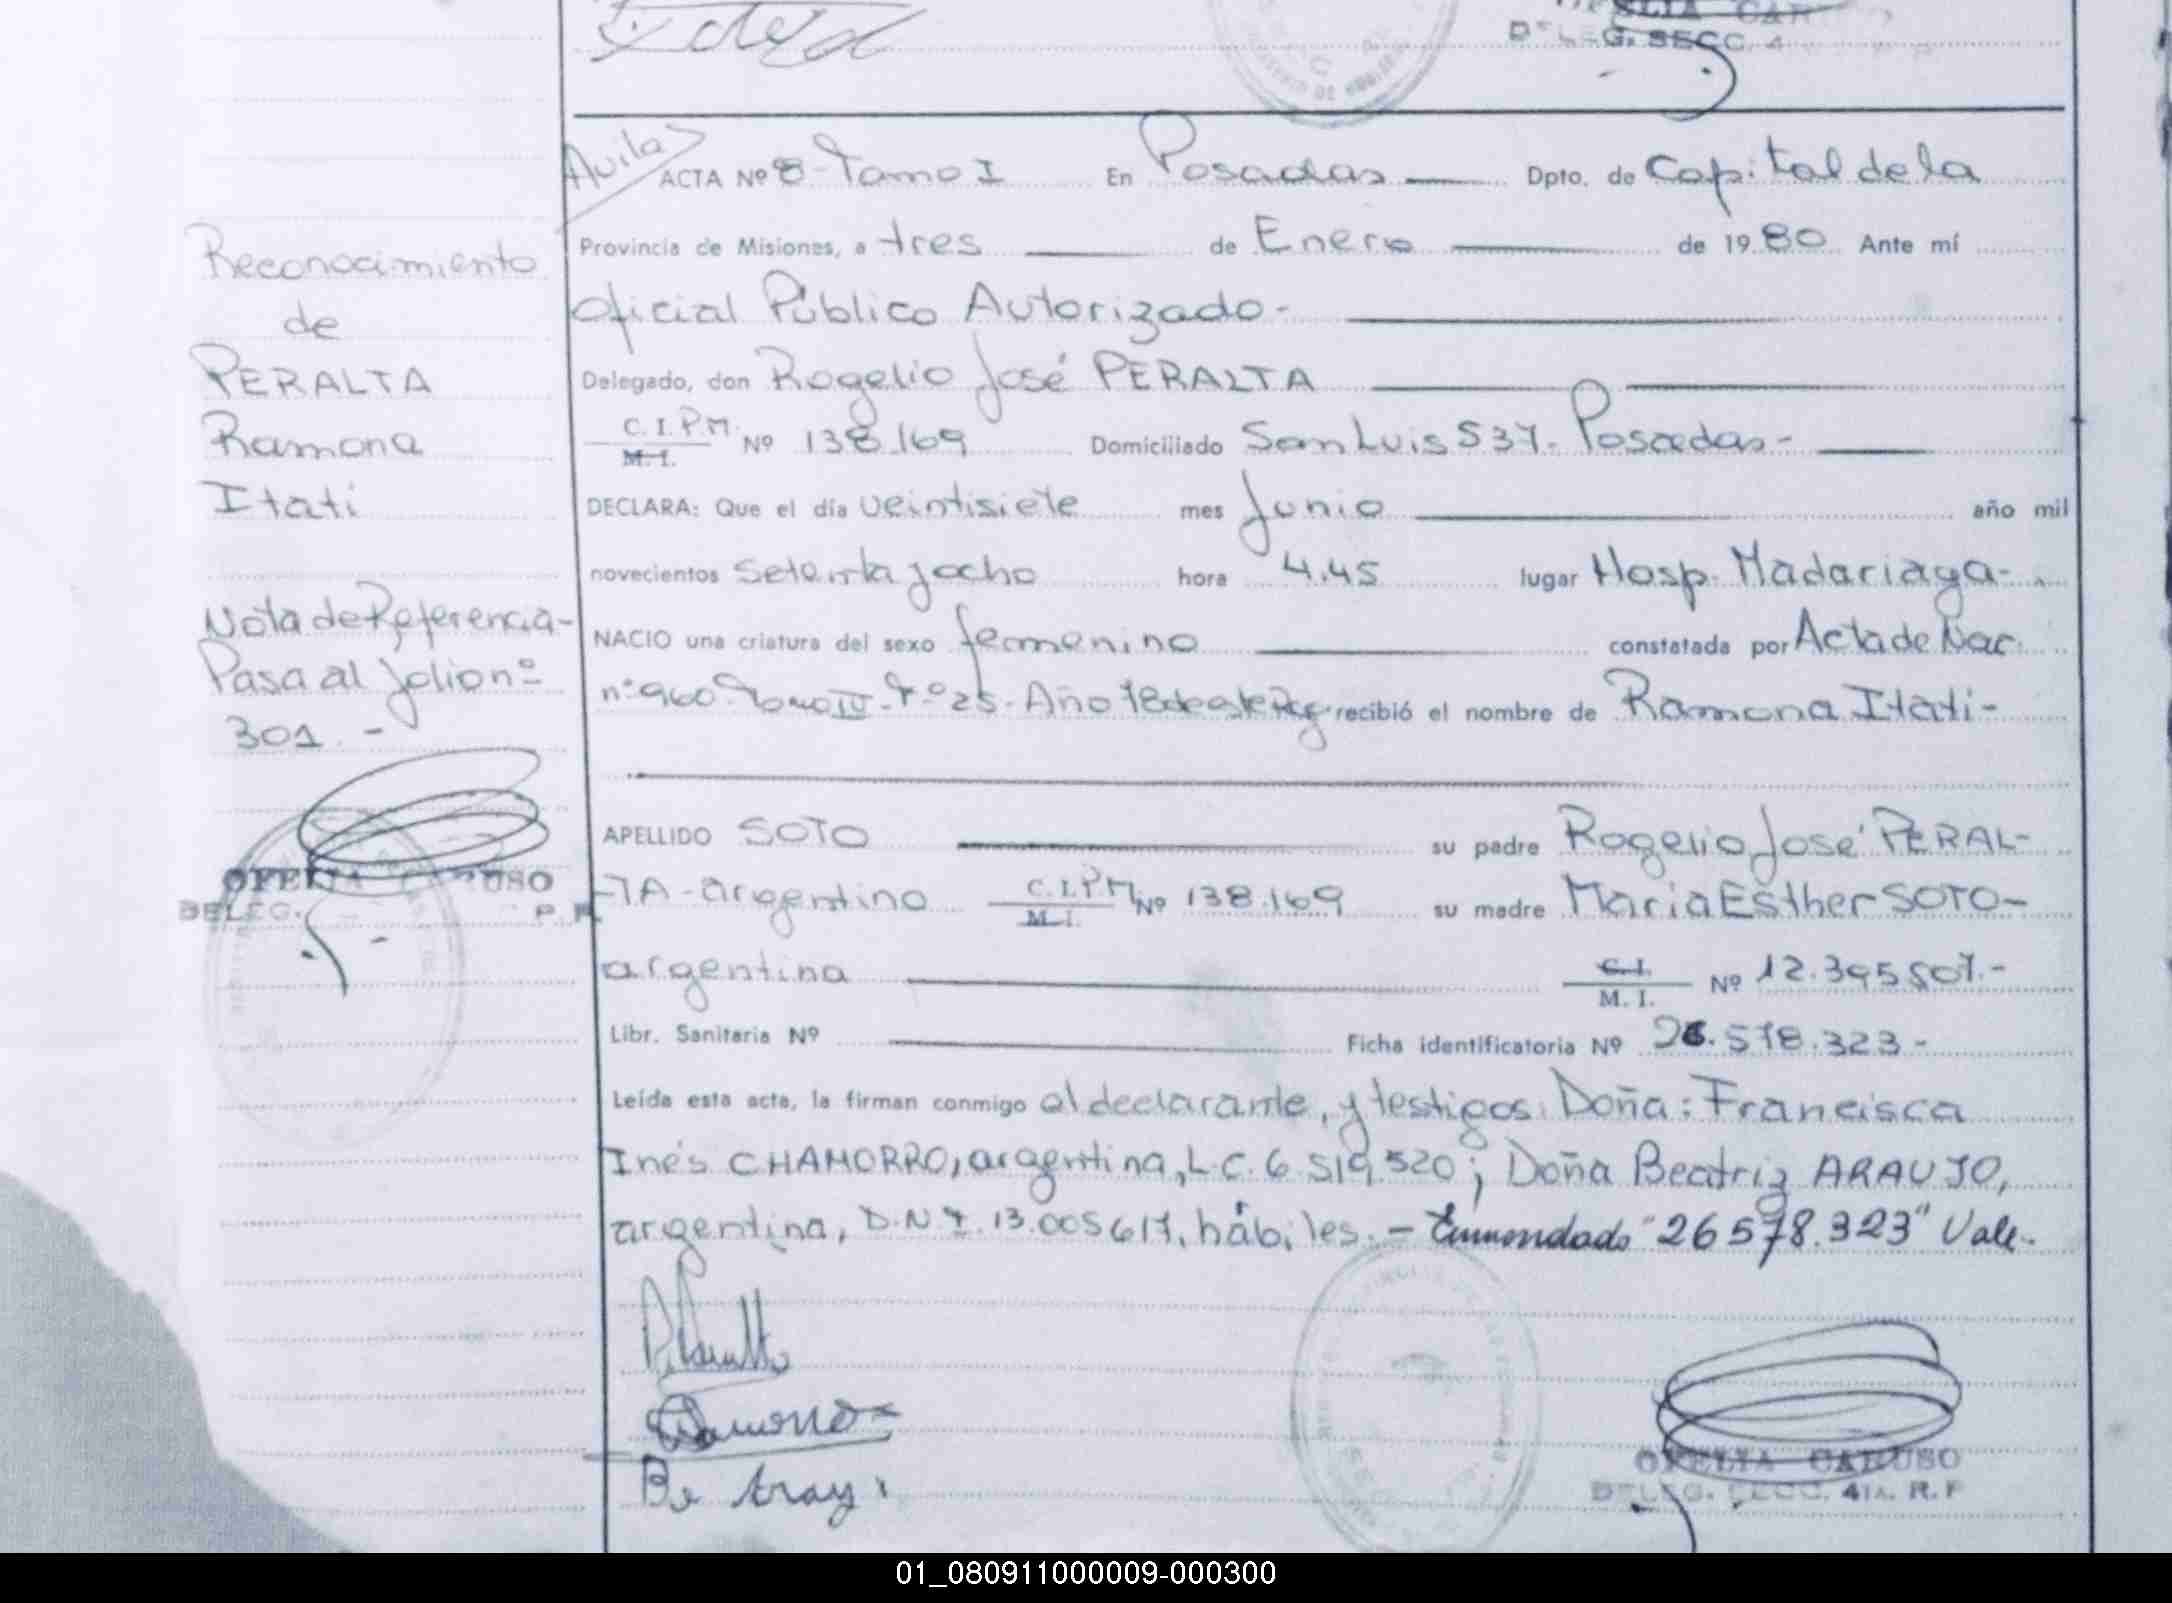 DELEG. SECC. 4
Avila
ACTA Nº 8 - Tomo I En Posadas Dpto. de Capital de la
Provincia de Misiones, a tres de Enero de 1980 Ante mí
Oficial Público Autorizado-
Delegado, don Rogelio José PERALTA
C.I.P.M. M.I. Nº 138.169 Domiciliado San Luis 537- Posadas-
DECLARA: Que el día veintisiete mes Junio año mil
novecientos setenta y ocho hora 4.45 lugar Hosp. Madariaga-
NACIO una criatura del sexo femenino constatada por Acta de Nac.
nº 960- Tomo IV- Fº 25- Año 78 de este Reg. recibió el nombre de Ramona Itati-
APELLIDO SOTO su padre Rogelio José PERAL-
TA- argentino C.I.P.M M.I. Nº 138.169 su madre Maria Esther SOTO-
argentina C.I. M.I. Nº 12.395.507.-
Libr. Sanitaria Nº Ficha identificatoria Nº 26.578.323-
Leída esta acta, la firman conmigo el declarante, y testigos: Doña: Francisca
Inés CHAMORRO, argentina, L.C. 6.519.520; Doña Beatriz ARAUJO,
argentina, D.N.I. 13.005.617, hábiles.- Enmendado "26578.323" Vale.-
OFELIA CARUSO
DELEG. SECC. 4TA. R.P
Reconocimiento
de
PERALTA
Ramona
Itati
Nota de Referencia-
Pasa al folio nº
301.-
OFELIA CARUSO
DELEG.
01_080911000009-000300